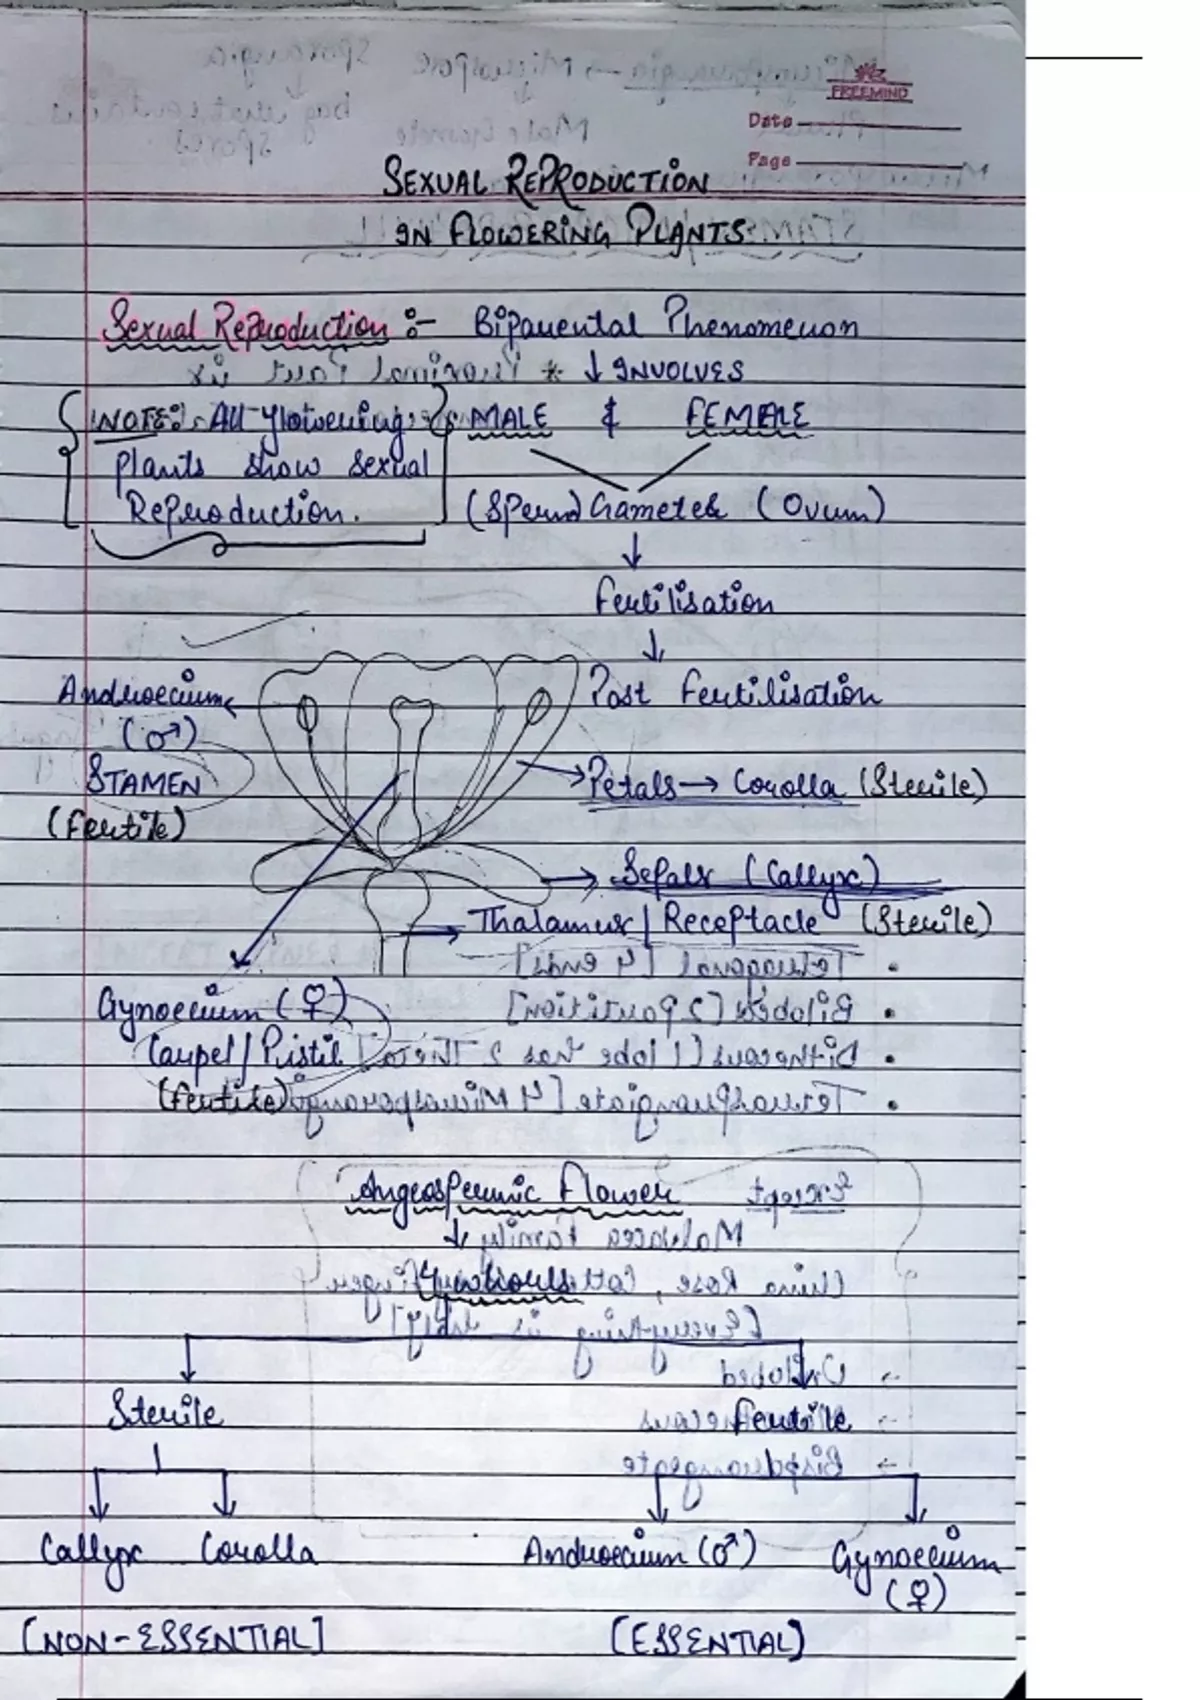 FREEMIND
Date
Page
SEXUAL REPRODUCTION
IN FLOWERING PLANTS
Sexual Reproduction :- Biparental Phenomenon
↓ INVOLVES
{NOTE: All flowering MALE & FEMALE
plants show sexual
Reproduction. (Sperm) Gametes (Ovum)
↓
Fertilisation
↓
Androecium Post Fertilisation
(♂)
STAMEN → Petals → Corolla (Sterile)
(Fertile)
→ Sepals (Callyx)
→ Thalamus / Receptacle (Sterile)
Gynoecium (♀)
Carpel / Pistil
(Fertile)
Angeospermic Flower
↓
4 whorls
Sterile Fertile
Callyx Corolla Androecium (♂) Gynoecium
(♀)
[NON-ESSENTIAL] [ESSENTIAL]